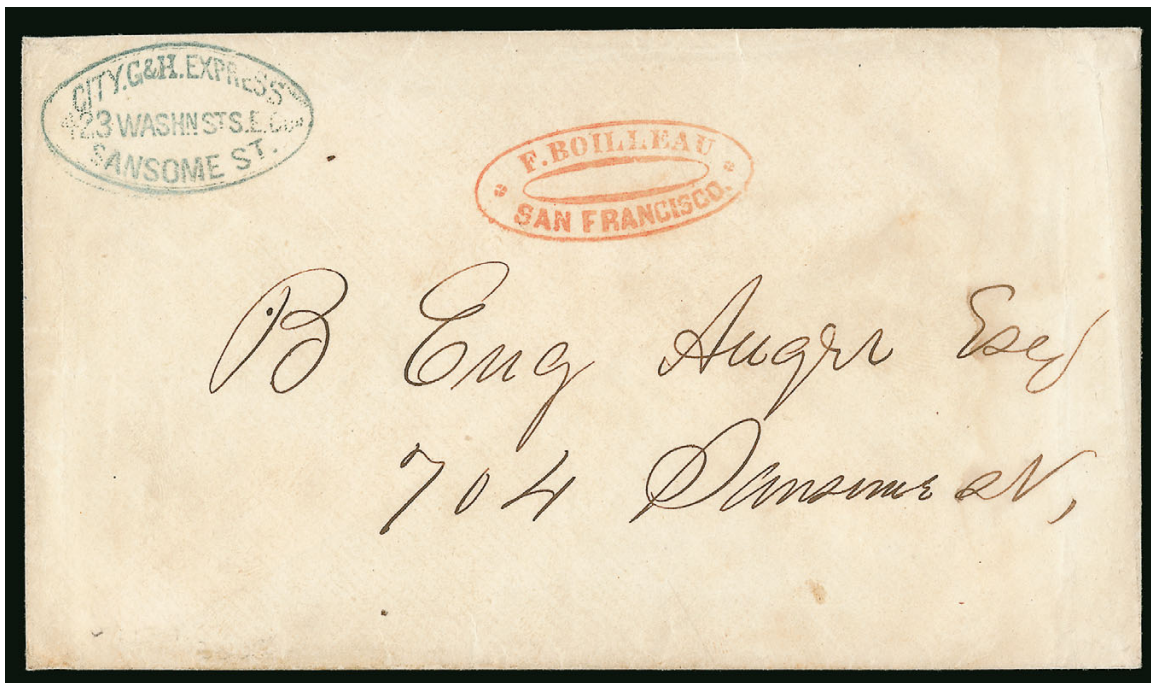 CITY.G&H.EXPRESS
423 WASHN ST S.E.COR
SANSOME ST.
F. BOILLEAU
SAN FRANCISCO.
B Eug Auger Esq
704 Sansome St,